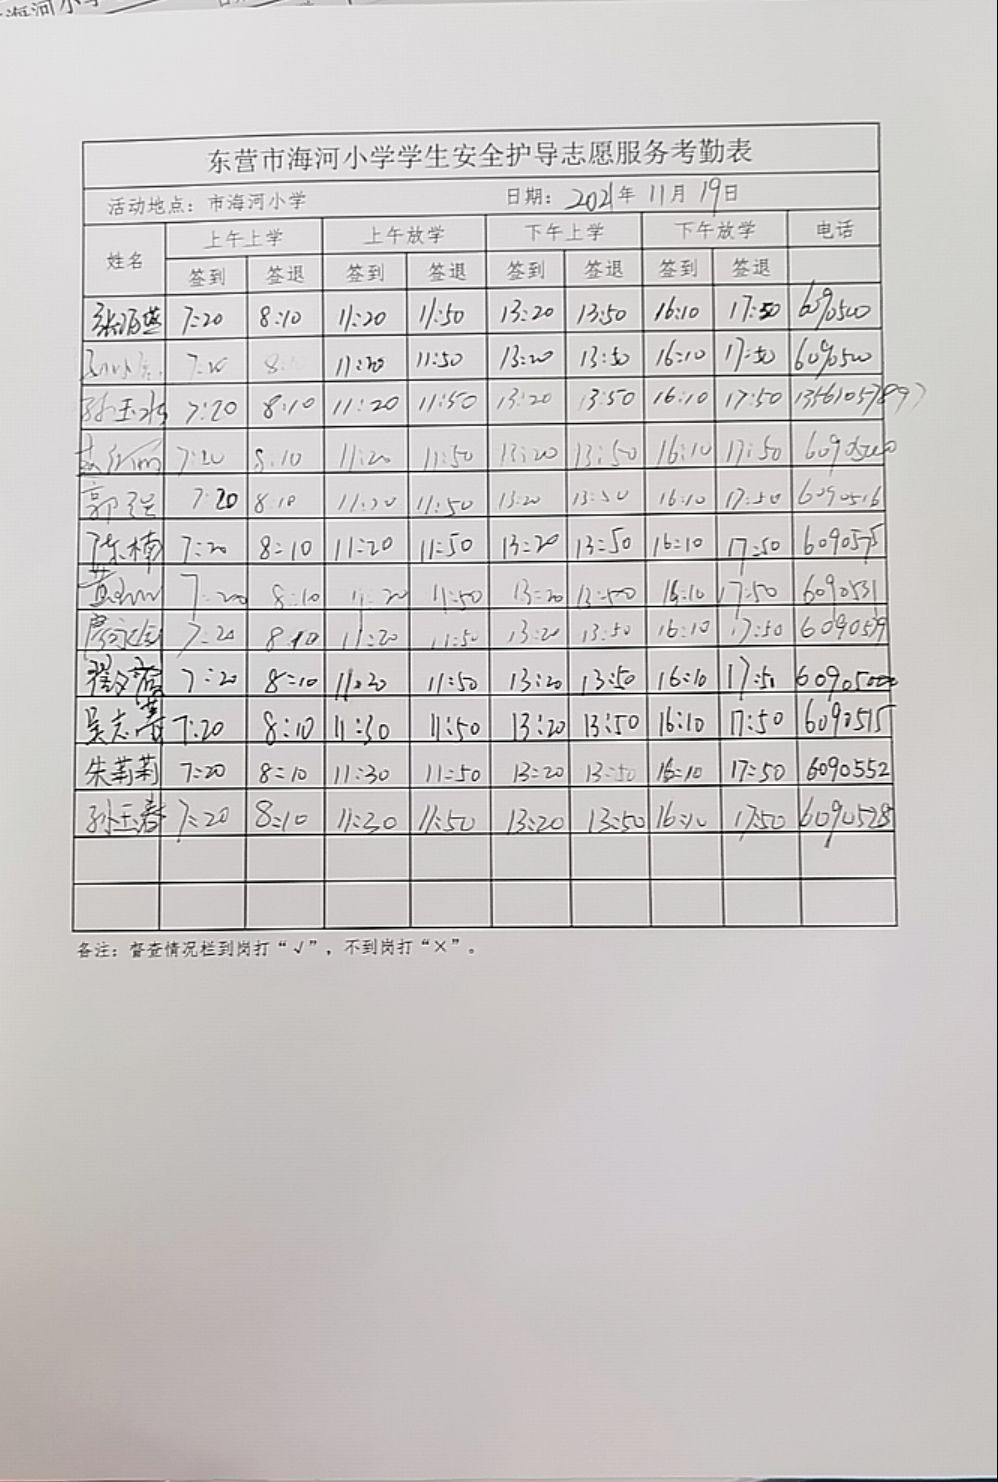 海河小学
东营市海河小学学生安全护导志愿服务考勤表
活动地点：市海河小学 日期：2021年 11月 19日
姓名 上午上学 上午放学 下午上学 下午放学 电话
签到 签退 签到 签退 签到 签退 签到 签退
7:20 8:10 11:20 11:50 13:20 13:50 16:10 17:50 6090500
7:20 8: 11:20 11:50 13:20 13:50 16:10 17:50 6090500
孙玉水 7:20 8:10 11:20 11:50 13:20 13:50 16:10 17:50 13561057897
7:20 8:10 11:20 11:50 13:20 13:50 16:10 17:50
郭强 7:20 8:10 11:20 11:50 13:20 13:50 16:10 17:50 6090516
陈楠 7:20 8:10 11:20 11:50 13:20 13:50 16:10 17:50 6090575
7:20 8:10 11:20 11:50 13:20 13:50 16:10 17:50 6090531
7:20 8:10 11:20 11:50 13:20 13:50 16:10 17:50 6090579
7:20 8:10 11:20 11:50 13:20 13:50 16:10 17:50
吴志 7:20 8:10 11:30 11:50 13:20 13:50 16:10 17:50 6090515
朱莉莉 7:20 8:10 11:30 11:50 13:20 13:50 16:10 17:50 6090552
孙玉春 7:20 8:10 11:30 11:50 13:20 13:50 16:10 17:50 6090528
备注：督查情况栏到岗打“√”，不到岗打“×”。